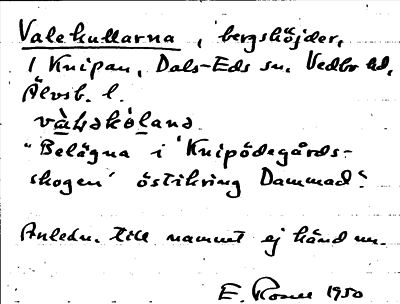 Valekullarna, bergshöjder,
i Knipan, Dals-Eds sn. Vedbo hd,
Älvsb. l.
"Belägna i 'Knipödegårds-
skogen' östikring Dammad".
Anledn. till namnet ej känd nu.
E. 1950